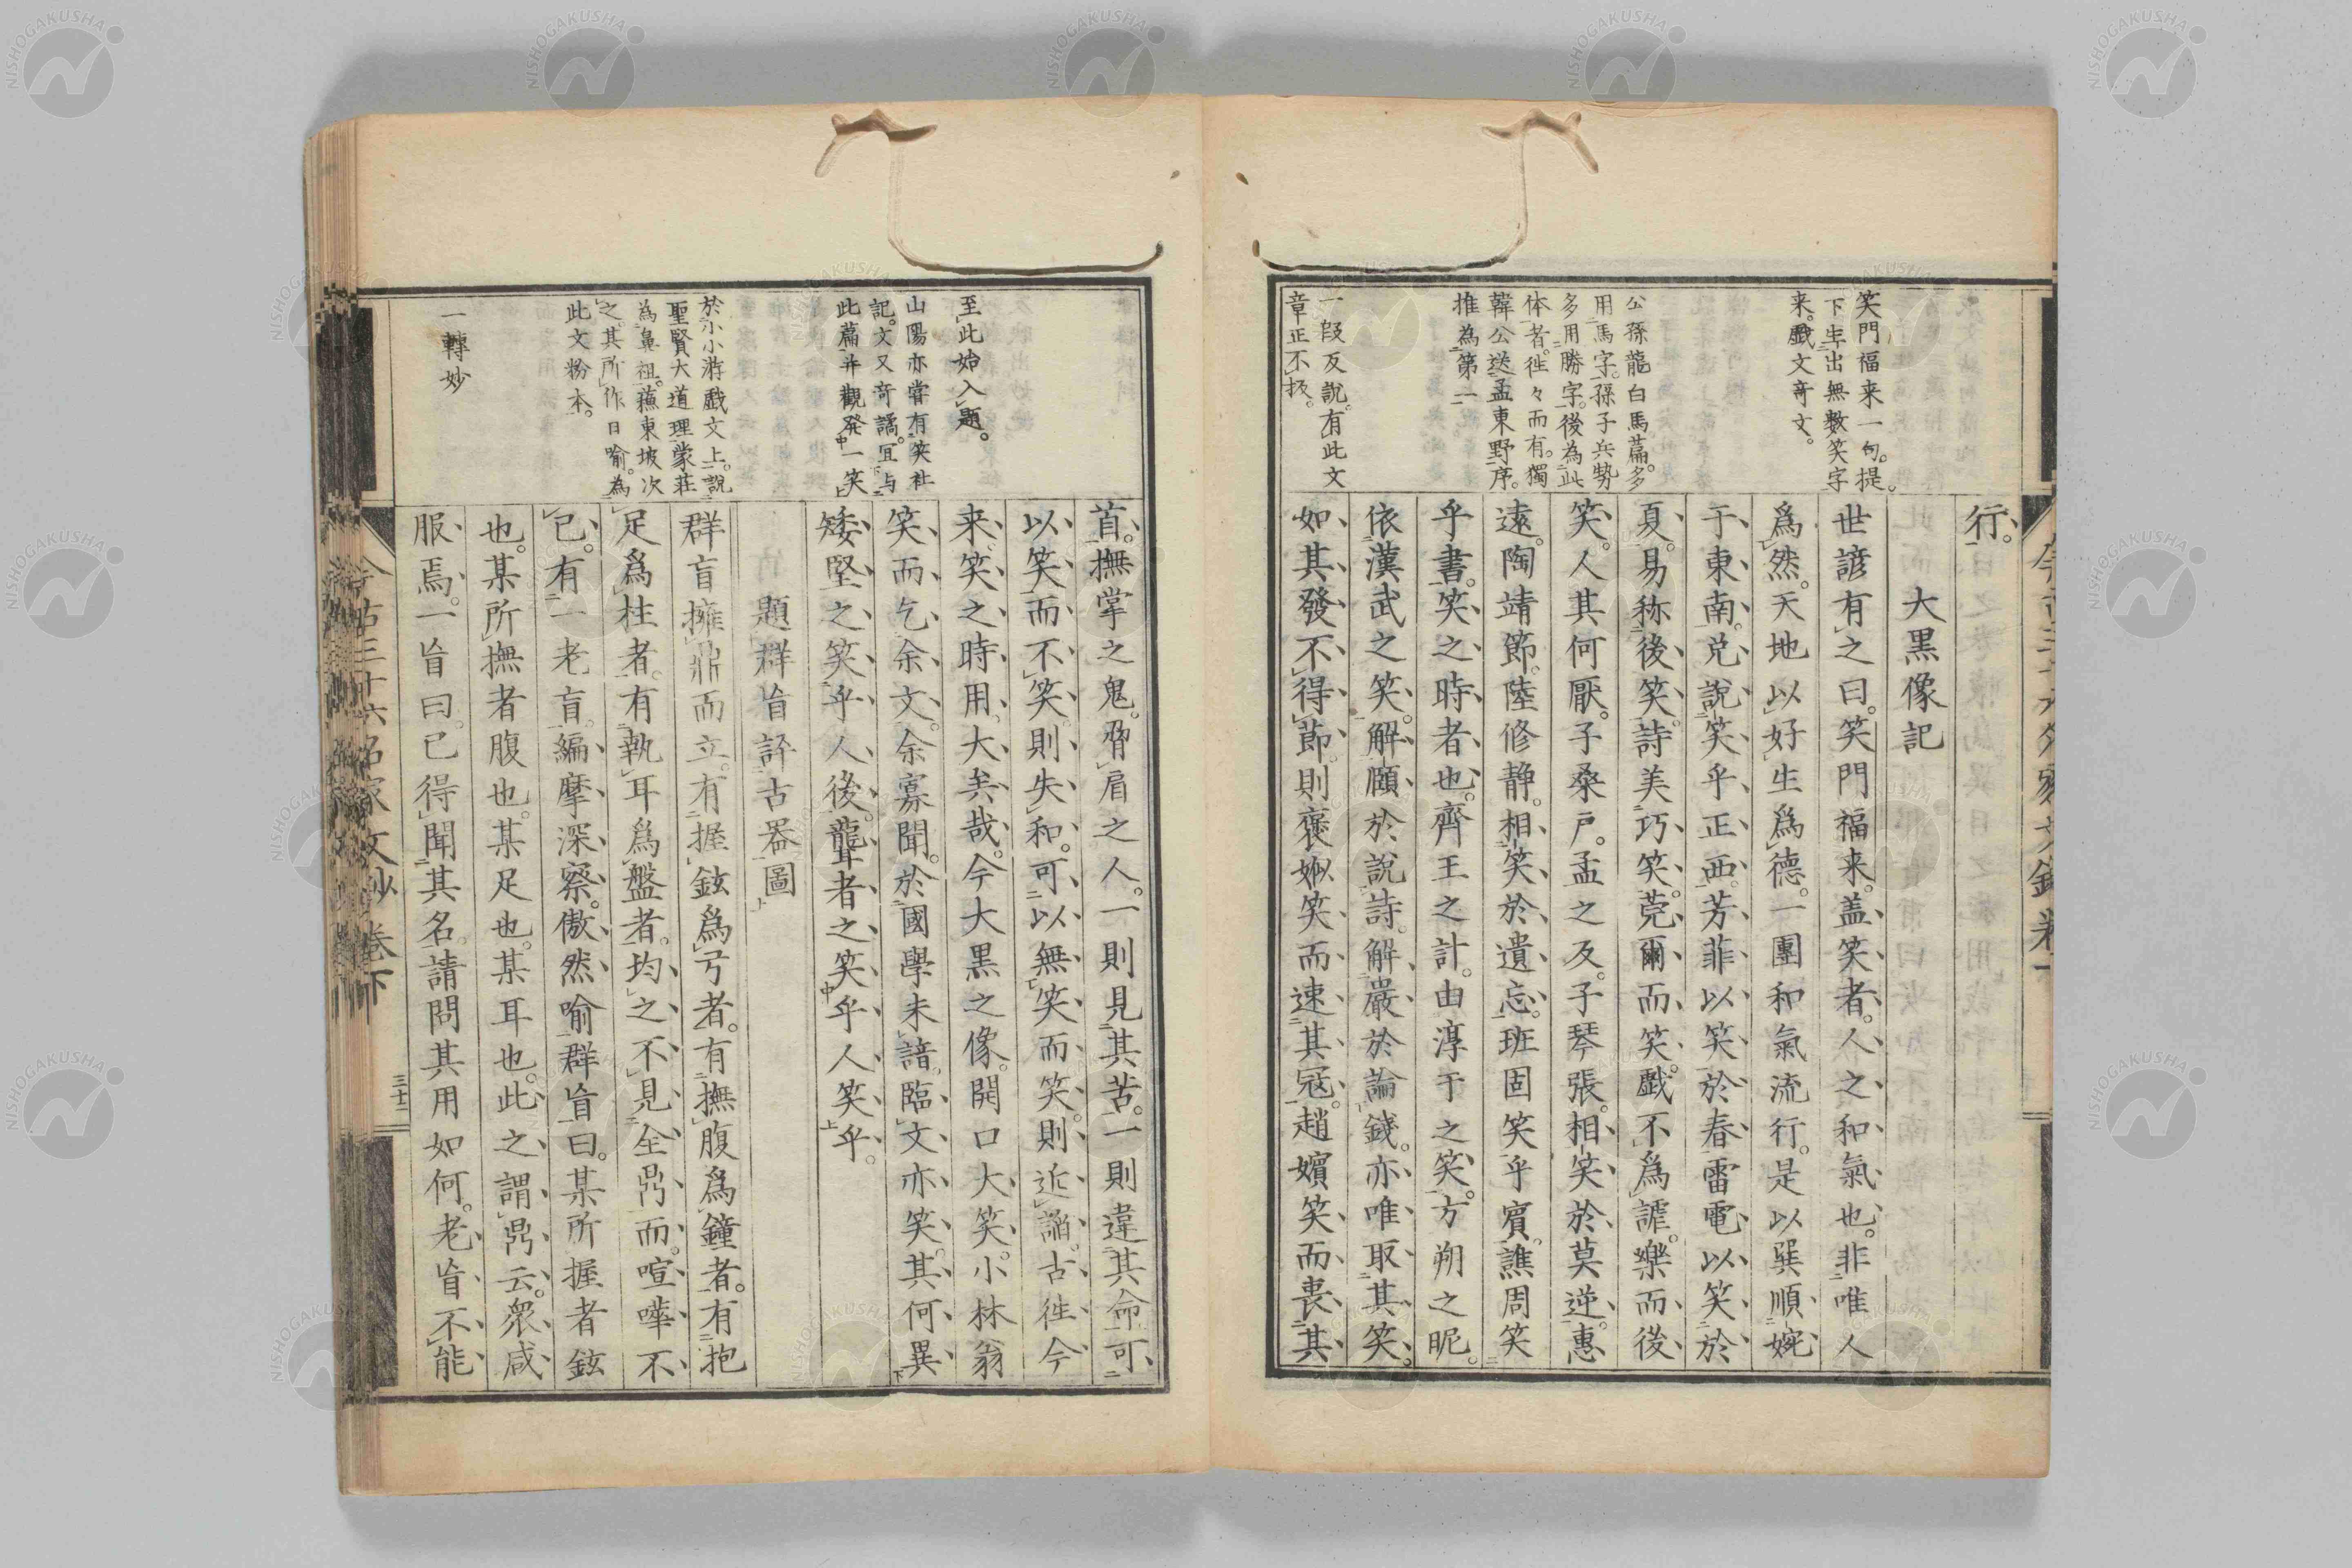 笑門福来一句。提
下生出無數笑字
来。戲文奇文。
公孫龍白馬篇。多
用馬字。孫子兵勢
多用勝字。後為此
体者。徃々而有。獨
韓公送孟東野序。
推為第一
一段反說。有此文
章正不扳。
行。
大黒像記
世諺有之曰。笑門福来。盖笑者。人之和氣也。非唯人
爲然。天地以好生爲德。一團和氣流行。是以巽順婉
于東南。兑說笑乎正西。芳菲以笑於春。雷電以笑於
夏。易称後笑。詩美巧笑。莞爾而笑。戲不爲謔。樂而後
笑。人其何厭。子桑戸。孟之反。子琴張。相笑於莫逆。惠
遠。陶靖節。陸修静。相笑於遺忘。班固笑乎賓。譙周笑
乎書。笑之時者也。齊王之計。由淳于之笑。方朔之昵。
依漢武之笑。解頤於說詩。解嚴於論錢。亦唯取其笑。
如其發不得節。則褒姒笑而速其寇。趙嬪笑而喪其
至此始入題。
山陽亦嘗有笑社
記。文又奇譎。冝与
此篇并觀発一笑
於小小游戲文上。說
聖賢大道理。蒙莊
為鼻祖。蘓東坡次
之。其所作日喻。為
此文粉本。
一轉妙
首。撫掌之鬼。脅肩之人。一則見其苦。一則違其命。可
以笑而不笑。則失和。可以無笑而笑。則近謟。古徃今
来。笑之時用。大矣哉。今大黒之像。開口大笑。小林翁
笑而乞余文。余寡聞。於國學未諳。臨文亦笑。其何異
矮竪之笑乎人後。聾者之笑乎人笑乎。
題群盲評古器圖
群盲擁鼎而立。有握鉉爲弓者。有撫腹爲鐘者。有抱
足爲柱者。有執耳爲盤者。均之不見全鼎而。喧嘩不
已。有一老盲。編摩深察。傲然喻群盲曰。某所握者鉉
也。某所撫者腹也。某足也。某耳也。此之謂鼎云。衆咸
服焉。一盲曰。已得聞其名。請問其用如何。老盲不能
今古三十六名家文鈔卷下
三十二